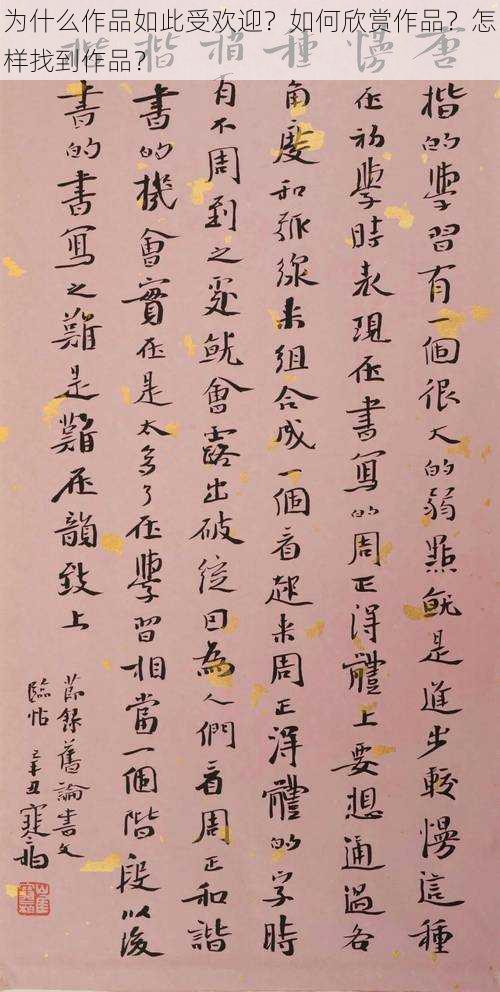 为什么作品如此受欢迎？如何欣赏作品？怎
样找到作品？
楷的學習有一個很大的弱點就是進步較慢這種
在初學時表現在書寫的周正得體上要想通過各
角度和弧線來組合成一個看起来周正得體的字時
有不周到之處就會露出破綻因為人們看周正和諧
書的機會實在是太多了在學習相當一個階段以後
書的書寫之難是難在韻致上
節錄舊論書文
臨帖 辛丑